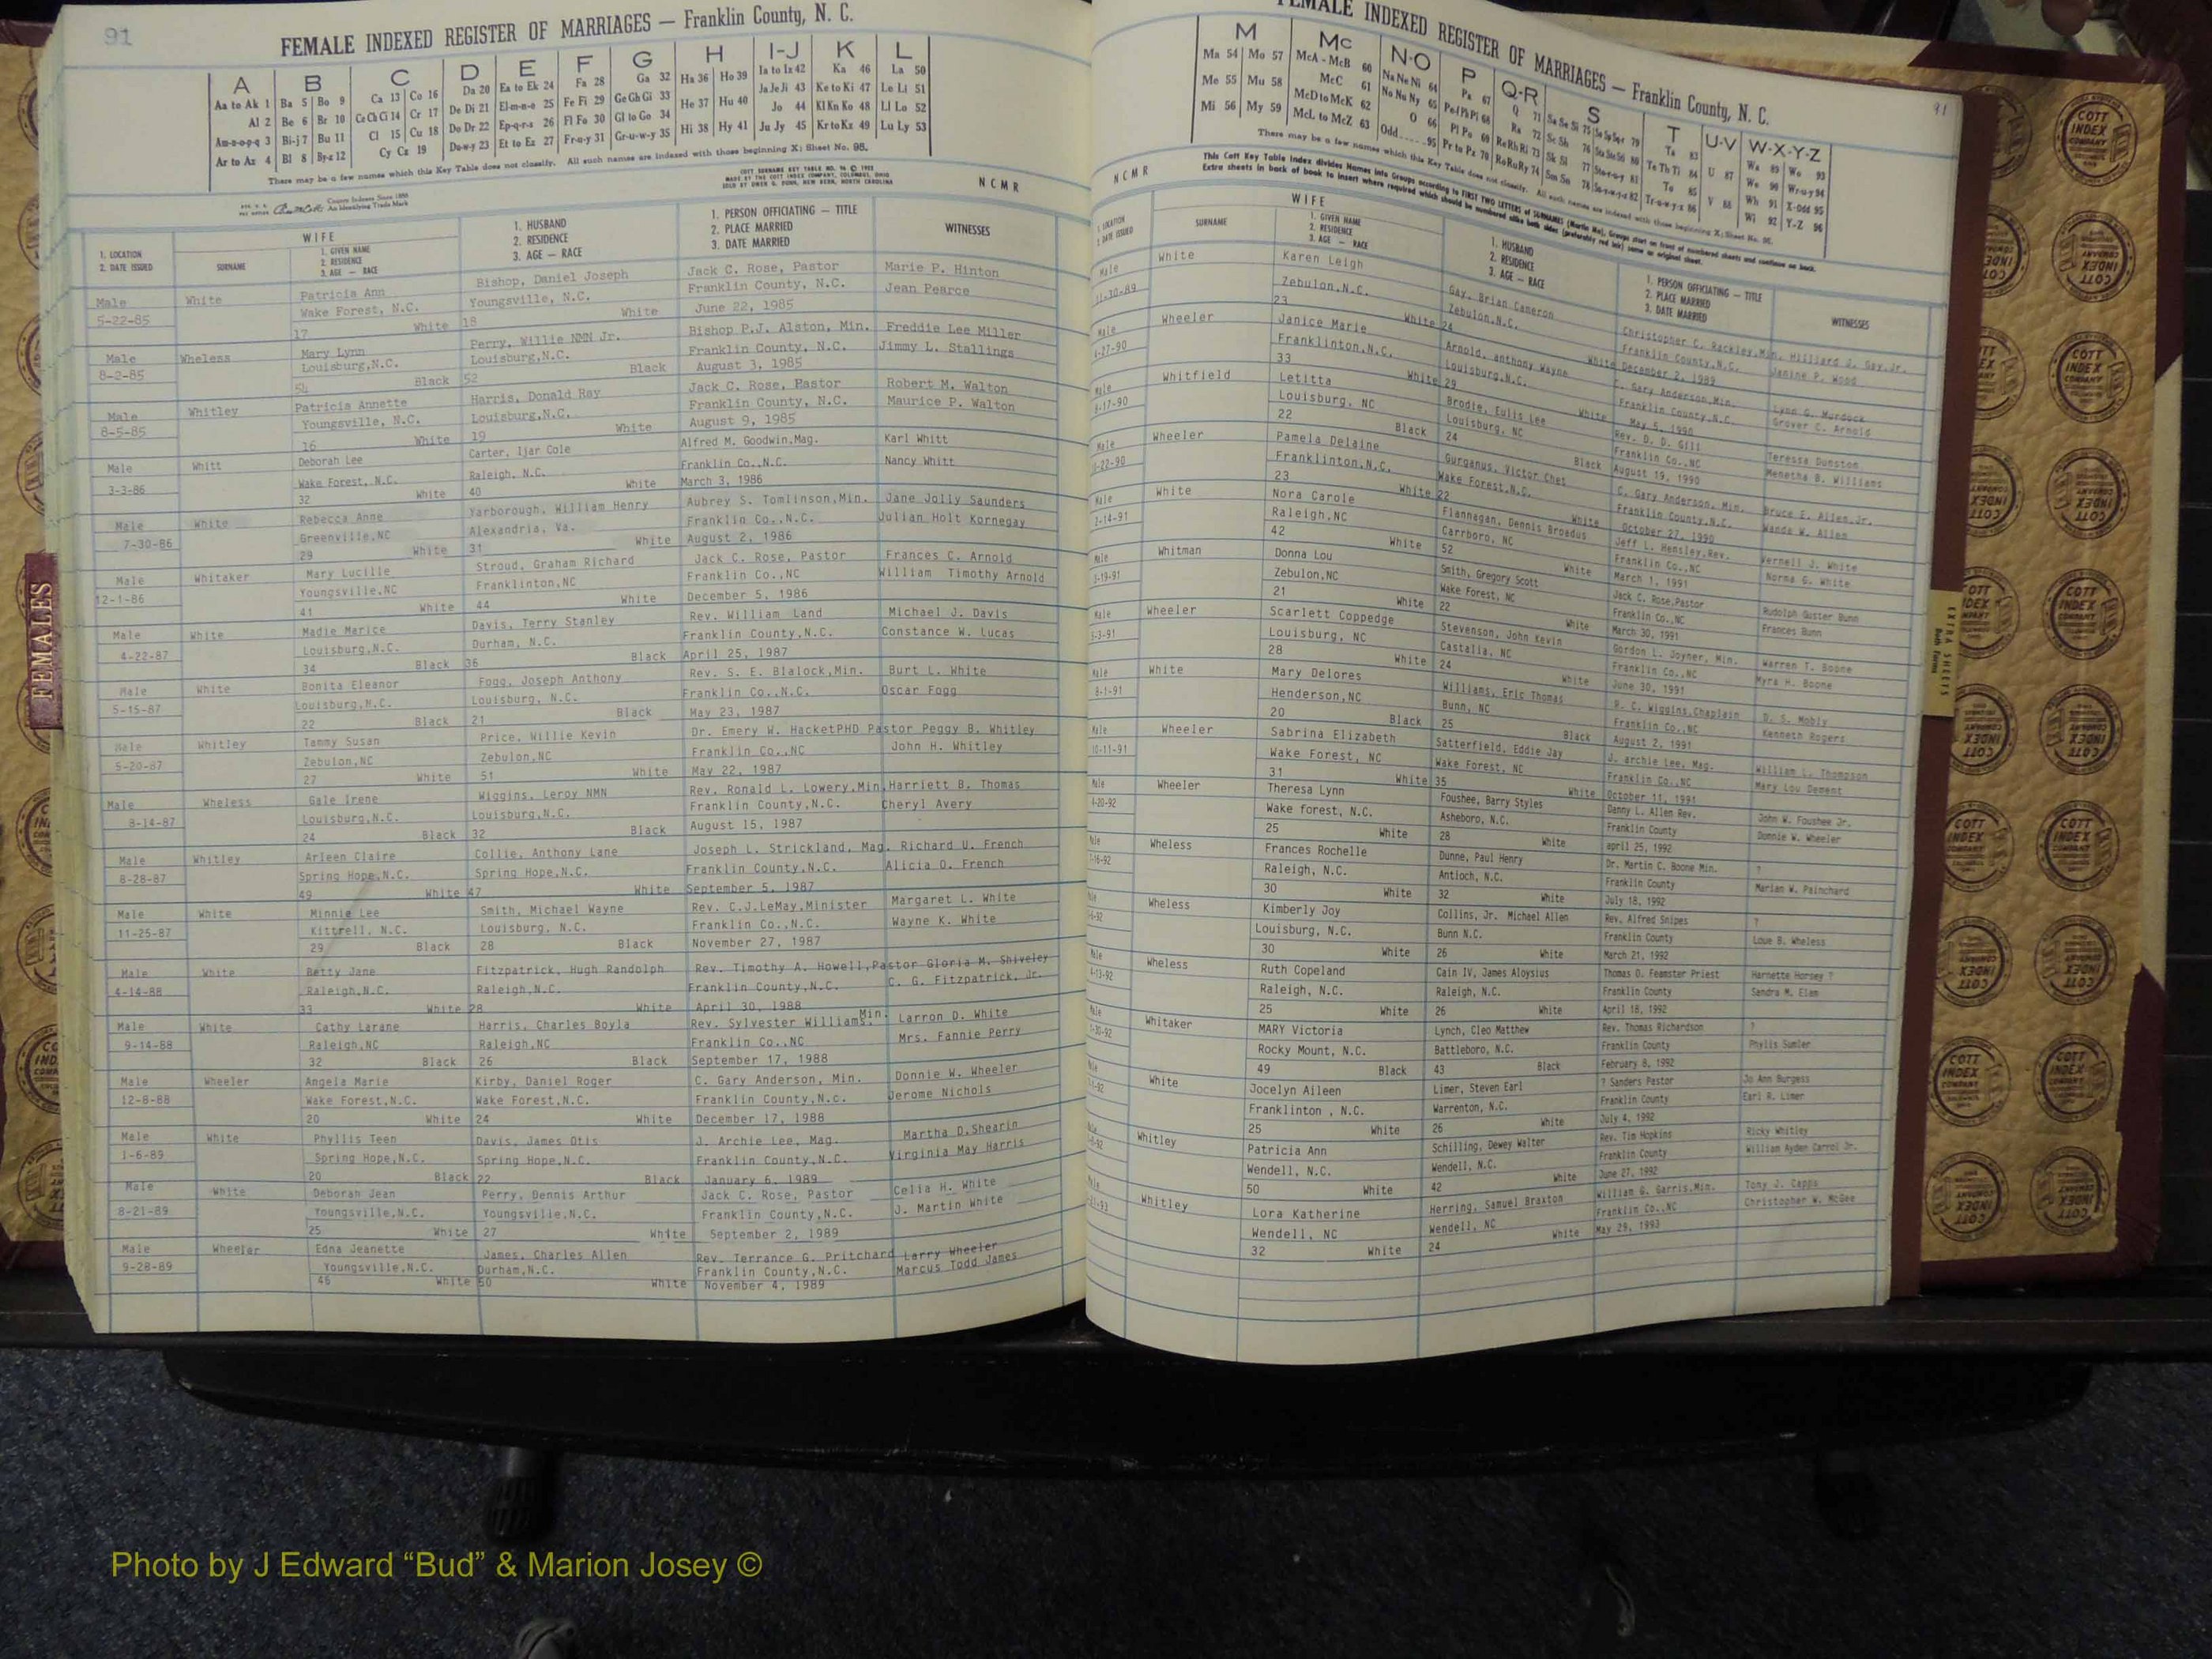 91
FEMALE INDEXED REGISTER OF MARRIAGES — Franklin County, N. C.
A B C D E F G H I-J K L
Aa to Ak 1 Ba 5 Bo 9 Ca 13 Co 16 Da 20 Ea to Ek 24 Fa 28 Ga 32 Ha 36 Ho 39 Ia to Iz 42 Ka 46 La 50
Al 2 Be 6 Br 10 Ce Ch Ci 14 Cr 17 De Di 21 El-m-n-o 25 Fe Fi 29 Ge Gh Gi 33 He 37 Hu 40 Ja Je Ji 43 Ke to Ki 47 Le Li 51
Am-n-o-p-q 3 Bi-j 7 Bu 11 Cl 15 Cu 18 Do Dr 22 Ep-q-r-s 26 Fl Fo 30 Gl to Go 34 Hi 38 Hy 41 Jo 44 Kl Kn Ko 48 Ll Lo 52
Ar to Az 4 Bl 8 By-z 12 Cy Cz 19 Du-w-y 23 Et to Ez 27 Fr-u-y 31 Gr-u-w-y 35 Ju Jy 45 Kr to Kz 49 Lu Ly 53
There may be a few names which this Key Table does not classify. All such names are indexed with those beginning X; Sheet No. 95.
N C M R
1. LOCATION
2. DATE ISSUED
WIFE
SURNAME
1. GIVEN NAME
2. RESIDENCE
3. AGE — RACE
1. HUSBAND
2. RESIDENCE
3. AGE — RACE
1. PERSON OFFICIATING — TITLE
2. PLACE MARRIED
3. DATE MARRIED
WITNESSES
Male White Patricia Ann Bishop, Daniel Joseph Jack C. Rose, Pastor Marie P. Hinton
5-22-85 Wake Forest, N.C. Youngsville, N.C. Franklin County, N.C. Jean Pearce
17 White 18 White June 22, 1985
Male Wheless Mary Lynn Perry, Willie NMN Jr. Bishop P.J. Alston, Min. Freddie Lee Miller
8-2-85 Louisburg,N.C. Louisburg,N.C. Franklin County, N.C. Jimmy L. Stallings
54 Black 52 Black August 3, 1985
Male Whitley Patricia Annette Harris, Donald Ray Jack C. Rose, Pastor Robert M. Walton
8-5-85 Youngsville, N.C. Louisburg,N.C. Franklin County, N.C. Maurice P. Walton
16 White 19 White August 9, 1985
Male Whitt Deborah Lee Carter, Ijar Cole Alfred M. Goodwin,Mag. Karl Whitt
3-3-86 Wake Forest, N.C. Raleigh, N.C. Franklin Co.,N.C. Nancy Whitt
32 White 40 White March 3, 1986
Male White Rebecca Anne Yarborough, William Henry Aubrey S. Tomlinson,Min. Jane Jolly Saunders
7-30-86 Greenville,NC Alexandria, Va. Franklin Co.,N.C. Julian Holt Kornegay
29 White 31 White August 2, 1986
Male Whitaker Mary Lucille Stroud, Graham Richard Jack C. Rose, Pastor Frances C. Arnold
12-1-86 Youngsville,NC Franklinton,NC Franklin Co.,NC William Timothy Arnold
41 White 44 White December 5, 1986
Male White Madie Marice Davis, Terry Stanley Rev. William Land Michael J. Davis
4-22-87 Louisburg,N.C. Durham, N.C. Franklin County,N.C. Constance W. Lucas
34 Black 36 Black April 25, 1987
Male White Bonita Eleanor Fogg, Joseph Anthony Rev. S. E. Blalock,Min. Burt L. White
5-15-87 Louisburg,N.C. Louisburg, N.C. Franklin Co.,N.C. Oscar Fogg
22 Black 21 Black May 23, 1987
Male Whitley Tammy Susan Price, Willie Kevin Dr. Emery W. HacketPHD Pastor Peggy B. Whitley
5-20-87 Zebulon,NC Zebulon,NC Franklin Co.,NC John H. Whitley
27 White 51 White May 22, 1987
Male Wheless Gale Irene Wiggins, Leroy NMN Rev. Ronald L. Lowery,Min Harriett B. Thomas
8-14-87 Louisburg,N.C. Louisburg,N.C. Franklin County,N.C. Cheryl Avery
24 Black 32 Black August 15, 1987
Male Whitley Arleen Claire Collie, Anthony Lane Joseph L. Strickland, Mag. Richard U. French
8-28-87 Spring Hope,N.C. Spring Hope,N.C. Franklin County,N.C. Alicia O. French
49 White 47 White September 5, 1987
Male White Minnie Lee Smith, Michael Wayne Rev. C.J.LeMay,Minister Margaret L. White
11-25-87 Kittrell, N.C. Louisburg, N.C. Franklin Co.,N.C. Wayne K. White
29 Black 28 Black November 27, 1987
Male White Betty Jane Fitzpatrick, Hugh Randolph Rev. Timothy A. Howell,Pastor Gloria M. Shiveley
4-14-88 Raleigh,N.C. Raleigh,N.C. Franklin County,N.C. C. G. Fitzpatrick, Jr.
33 White 28 White April 30, 1988
Male White Cathy Larane Harris, Charles Boyla Rev. Sylvester Williams, Min. Larron D. White
9-14-88 Raleigh,NC Raleigh,NC Franklin Co.,NC Mrs. Fannie Perry
32 Black 26 Black September 17, 1988
Male Wheeler Angela Marie Kirby, Daniel Roger C. Gary Anderson, Min. Donnie W. Wheeler
12-8-88 Wake Forest,N.C. Wake Forest,N.C. Franklin County,N.C. Jerome Nichols
20 White 24 White December 17, 1988
Male White Phyllis Teen Davis, James Otis J. Archie Lee, Mag. Martha D.Shearin
1-6-89 Spring Hope,N.C. Spring Hope,N.C. Franklin County,N.C. Virginia May Harris
20 Black 22 Black January 6, 1989
Male White Deborah Jean Perry, Dennis Arthur Jack C. Rose, Pastor Celia H. White
8-21-89 Youngsville,N.C. Youngsville,N.C. Franklin County,N.C. J. Martin White
25 White 27 White September 2, 1989
Male Wheeler Edna Jeanette James, Charles Allen Rev. Terrance G. Pritchard Larry Wheeler
9-28-89 Youngsville,N.C. Durham,N.C. Franklin County,N.C. Marcus Todd James
46 White 50 White November 4, 1989
FEMALE INDEXED REGISTER OF MARRIAGES — Franklin County, N. C.
91
M Mc N-O P Q-R S T U-V W-X-Y-Z
There may be a few names which this Key Table does not classify. All such names are indexed with those beginning X; Sheet No. 95.
This Cott Key Table Index divides Names into Groups according to FIRST TWO LETTERS of SURNAMES
N C M R
1. LOCATION
2. DATE ISSUED
WIFE
SURNAME
1. GIVEN NAME
2. RESIDENCE
3. AGE — RACE
1. HUSBAND
2. RESIDENCE
3. AGE — RACE
1. PERSON OFFICIATING — TITLE
2. PLACE MARRIED
3. DATE MARRIED
WITNESSES
Male White Karen Leigh Gay, Brian Cameron Christopher C. Rackley,Min. Hilliard J. Gay,Jr.
11-30-89 Zebulon,N.C. Zebulon,N.C. Franklin County,N.C. Janine P. Wood
23 White 24 White December 2, 1989
Male Wheeler Janice Marie Arnold, anthony Wayne C. Gary Anderson,Min. Lynn G. Murdock
4-27-90 Franklinton,N.C. Louisburg,N.C. Franklin County,N.C. Grover C. Arnold
33 White 29 White May 5, 1990
Male Whitfield Letitta Brodie, Eulis Lee Rev. D. D. Gill Teressa Dunston
8-17-90 Louisburg, NC Louisburg, NC Franklin Co.,NC Menetha B. Williams
22 Black 24 Black August 19, 1990
Male Wheeler Pamela Delaine Gurganus, Victor Chet C. Gary Anderson, Min. Bruce E. Allen,Jr.
10-22-90 Franklinton,N.C. Wake Forest,N.C. Franklin County,N.C. Wanda W. Allen
23 White 22 White October 27, 1990
Male White Nora Carole Flannagan, Dennis Broadus Jeff L. Hensley,Rev. Vernell J. White
2-14-91 Raleigh,NC Carrboro, NC Franklin Co.,NC Norma G. White
42 White 52 White March 1, 1991
Male Whitman Donna Lou Smith, Gregory Scott Jack C. Rose,Pastor Rudolph Guster Bunn
3-19-91 Zebulon,NC Wake Forest, NC Franklin Co.,NC Frances Bunn
21 White 22 White March 30, 1991
Male Wheeler Scarlett Coppedge Stevenson, John Kevin Gordon L. Joyner, Min. Warren T. Boone
6-3-91 Louisburg, NC Castalia, NC Franklin Co.,NC Myra H. Boone
28 White 24 White June 30, 1991
Male White Mary Delores Williams, Eric Thomas R. C. Wiggins,Chaplain D. S. Mobly
8-1-91 Henderson,NC Bunn, NC Franklin Co.,NC Kenneth Rogers
20 Black 25 Black August 2, 1991
Male Wheeler Sabrina Elizabeth Satterfield, Eddie Jay J. archie Lee, Mag. William L. Thompson
10-11-91 Wake Forest, NC Wake Forest, NC Franklin Co.,NC Mary Lou Dement
31 White 35 White October 11, 1991
Male Wheeler Theresa Lynn Foushee, Barry Styles Danny L. Allen Rev. John W. Foushee Jr.
4-20-92 Wake forest, N.C. Asheboro, N.C. Franklin County Donnie W. Wheeler
25 White 28 White april 25, 1992
Male Wheless Frances Rochelle Dunne, Paul Henry Dr. Martin C. Boone Min. ?
7-16-92 Raleigh, N.C. Antioch, N.C. Franklin County Marian W. Painchard
30 White 32 White July 18, 1992
Wheless Kimberly Joy Collins, Jr. Michael Allen Rev. Alfred Snipes ?
Louisburg, N.C. Bunn N.C. Franklin County Loue B. Wheless
30 White 26 White March 21, 1992
Male Wheless Ruth Copeland Cain IV, James Aloysius Thomas O. Feamster Priest Harnette Horsey ?
4-13-92 Raleigh, N.C. Raleigh, N.C. Franklin County Sandra M. Elam
25 White 26 White April 18, 1992
Male Whitaker MARY Victoria Lynch, Cleo Matthew Rev. Thomas Richardson ?
1-30-92 Rocky Mount, N.C. Battleboro, N.C. Franklin County Phylis Sumler
49 Black 43 Black February 8, 1992
White Jocelyn Aileen Limer, Steven Earl ? Sanders Pastor Jo Ann Burgess
Franklinton , N.C. Warrenton, N.C. Franklin County Earl R. Limer
25 White 26 White July 4, 1992
Whitley Patricia Ann Schilling, Dewey Walter Rev. Tim Hopkins Ricky Whitley
Wendell, N.C. Wendell, N.C. Franklin County William Ayden Carrol Jr.
50 White 42 White June 27, 1992
Whitley Lora Katherine Herring, Samuel Braxton William G. Garris,Min. Tony J. Capps
Wendell, NC Wendell, NC Franklin Co.,NC Christopher W. McGee
32 White 24 White May 29, 1993
FEMALES
EXTRA SHEETS
COTT INDEX COMPANY
Photo by J Edward “Bud” & Marion Josey ©